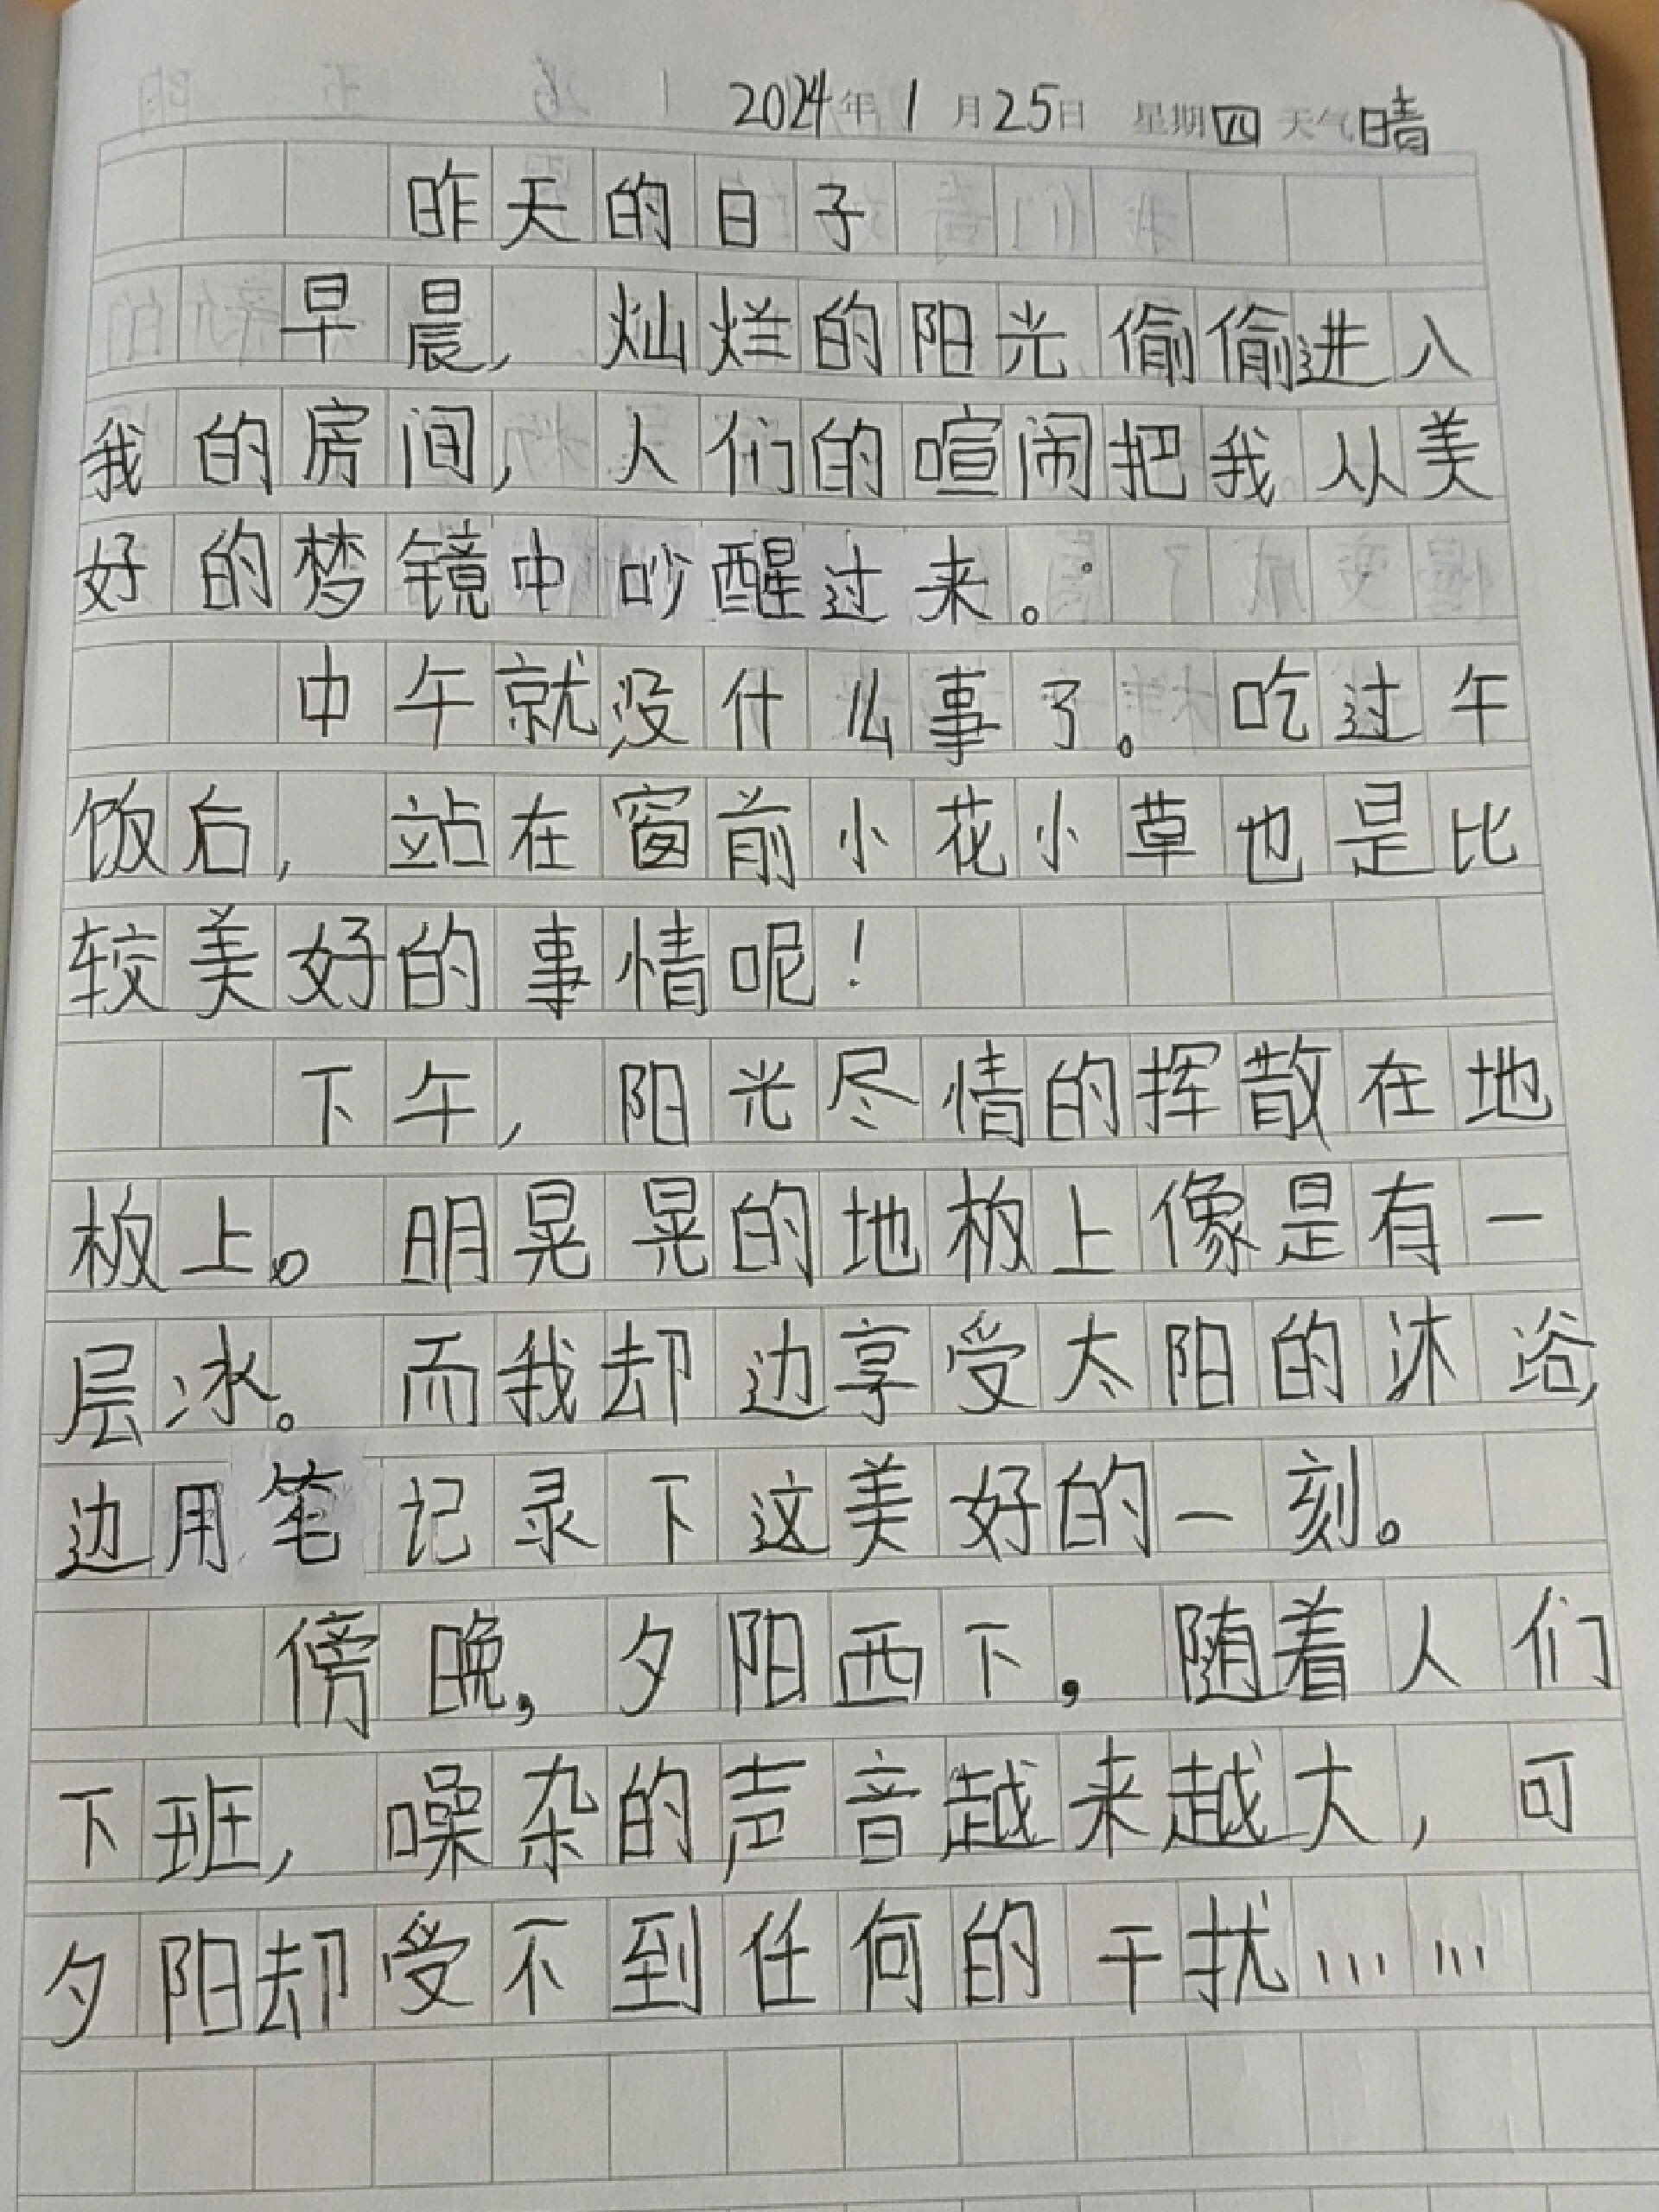 2024年1月25日 星期四 天气晴
昨天的日子
早晨,灿烂的阳光偷偷进入
我的房间,人们的喧闹把我从美
好的梦镜中吵醒过来。
中午就没什么事了。吃过午
饭后,站在窗前小花小草也是比
较美好的事情呢!
下午,阳光尽情的挥散在地
板上。明晃晃的地板上像是有一
层冰。而我却边享受太阳的沐浴,
边用笔记录下这美好的一刻。
傍晚,夕阳西下,随着人们
下班,噪杂的声音越来越大,可
夕阳却受不到任何的干扰……